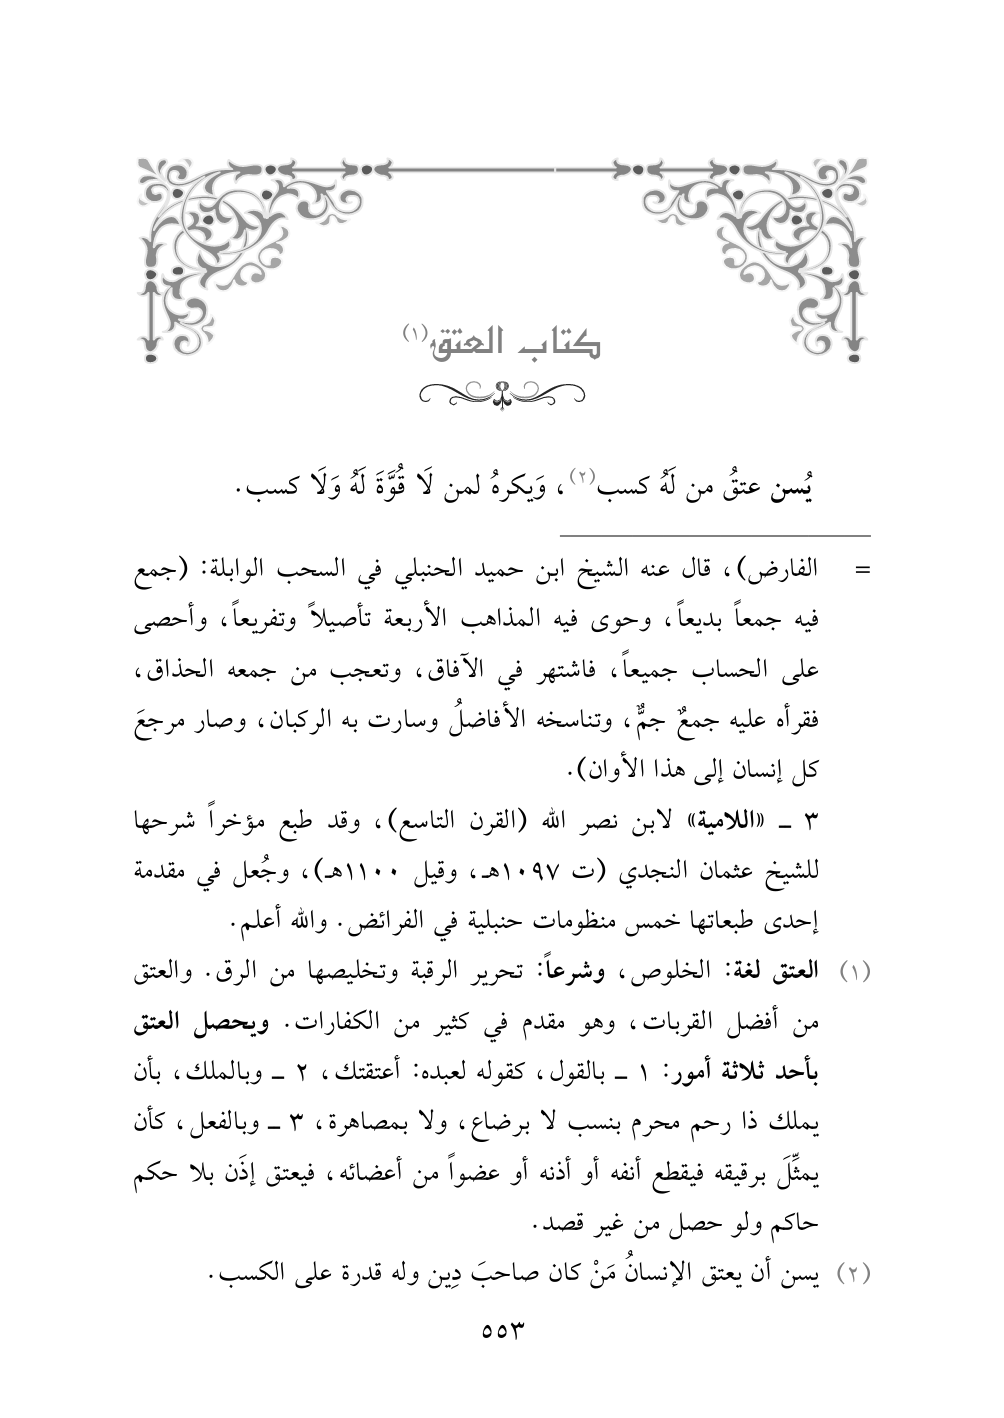 كتاب العتق(١)
يُسن عتقُ من لَهُ كسب(٢)، وَيكرهُ لمن لَا قُوَّةَ لَهُ وَلَا كسب.
= الفارض)، قال عنه الشيخ ابن حميد الحنبلي في السحب الوابلة: (جمع
فيه جمعاً بديعاً، وحوى فيه المذاهب الأربعة تأصيلاً وتفريعاً، وأحصى
على الحساب جميعاً، فاشتهر في الآفاق، وتعجب من جمعه الحذاق،
فقرأه عليه جمعٌ جمٌّ، وتناسخه الأفاضلُ وسارت به الركبان، وصار مرجعَ
كل إنسان إلى هذا الأوان).
٣ ـ «اللامية» لابن نصر الله (القرن التاسع)، وقد طبع مؤخراً شرحها
للشيخ عثمان النجدي (ت ١٠٩٧هـ، وقيل ١١٠٠هـ)، وجُعل في مقدمة
إحدى طبعاتها خمس منظومات حنبلية في الفرائض. والله أعلم.
(١) العتق لغة: الخلوص، وشرعاً: تحرير الرقبة وتخليصها من الرق. والعتق
من أفضل القربات، وهو مقدم في كثير من الكفارات. ويحصل العتق
بأحد ثلاثة أمور: ١ ـ بالقول، كقوله لعبده: أعتقتك، ٢ ـ وبالملك، بأن
يملك ذا رحم محرم بنسب لا برضاع، ولا بمصاهرة، ٣ ـ وبالفعل، كأن
يمثِّلَ برقيقه فيقطع أنفه أو أذنه أو عضواً من أعضائه، فيعتق إذَن بلا حكم
حاكم ولو حصل من غير قصد.
(٢) يسن أن يعتق الإنسانُ مَنْ كان صاحبَ دِين وله قدرة على الكسب.
٥٥٣